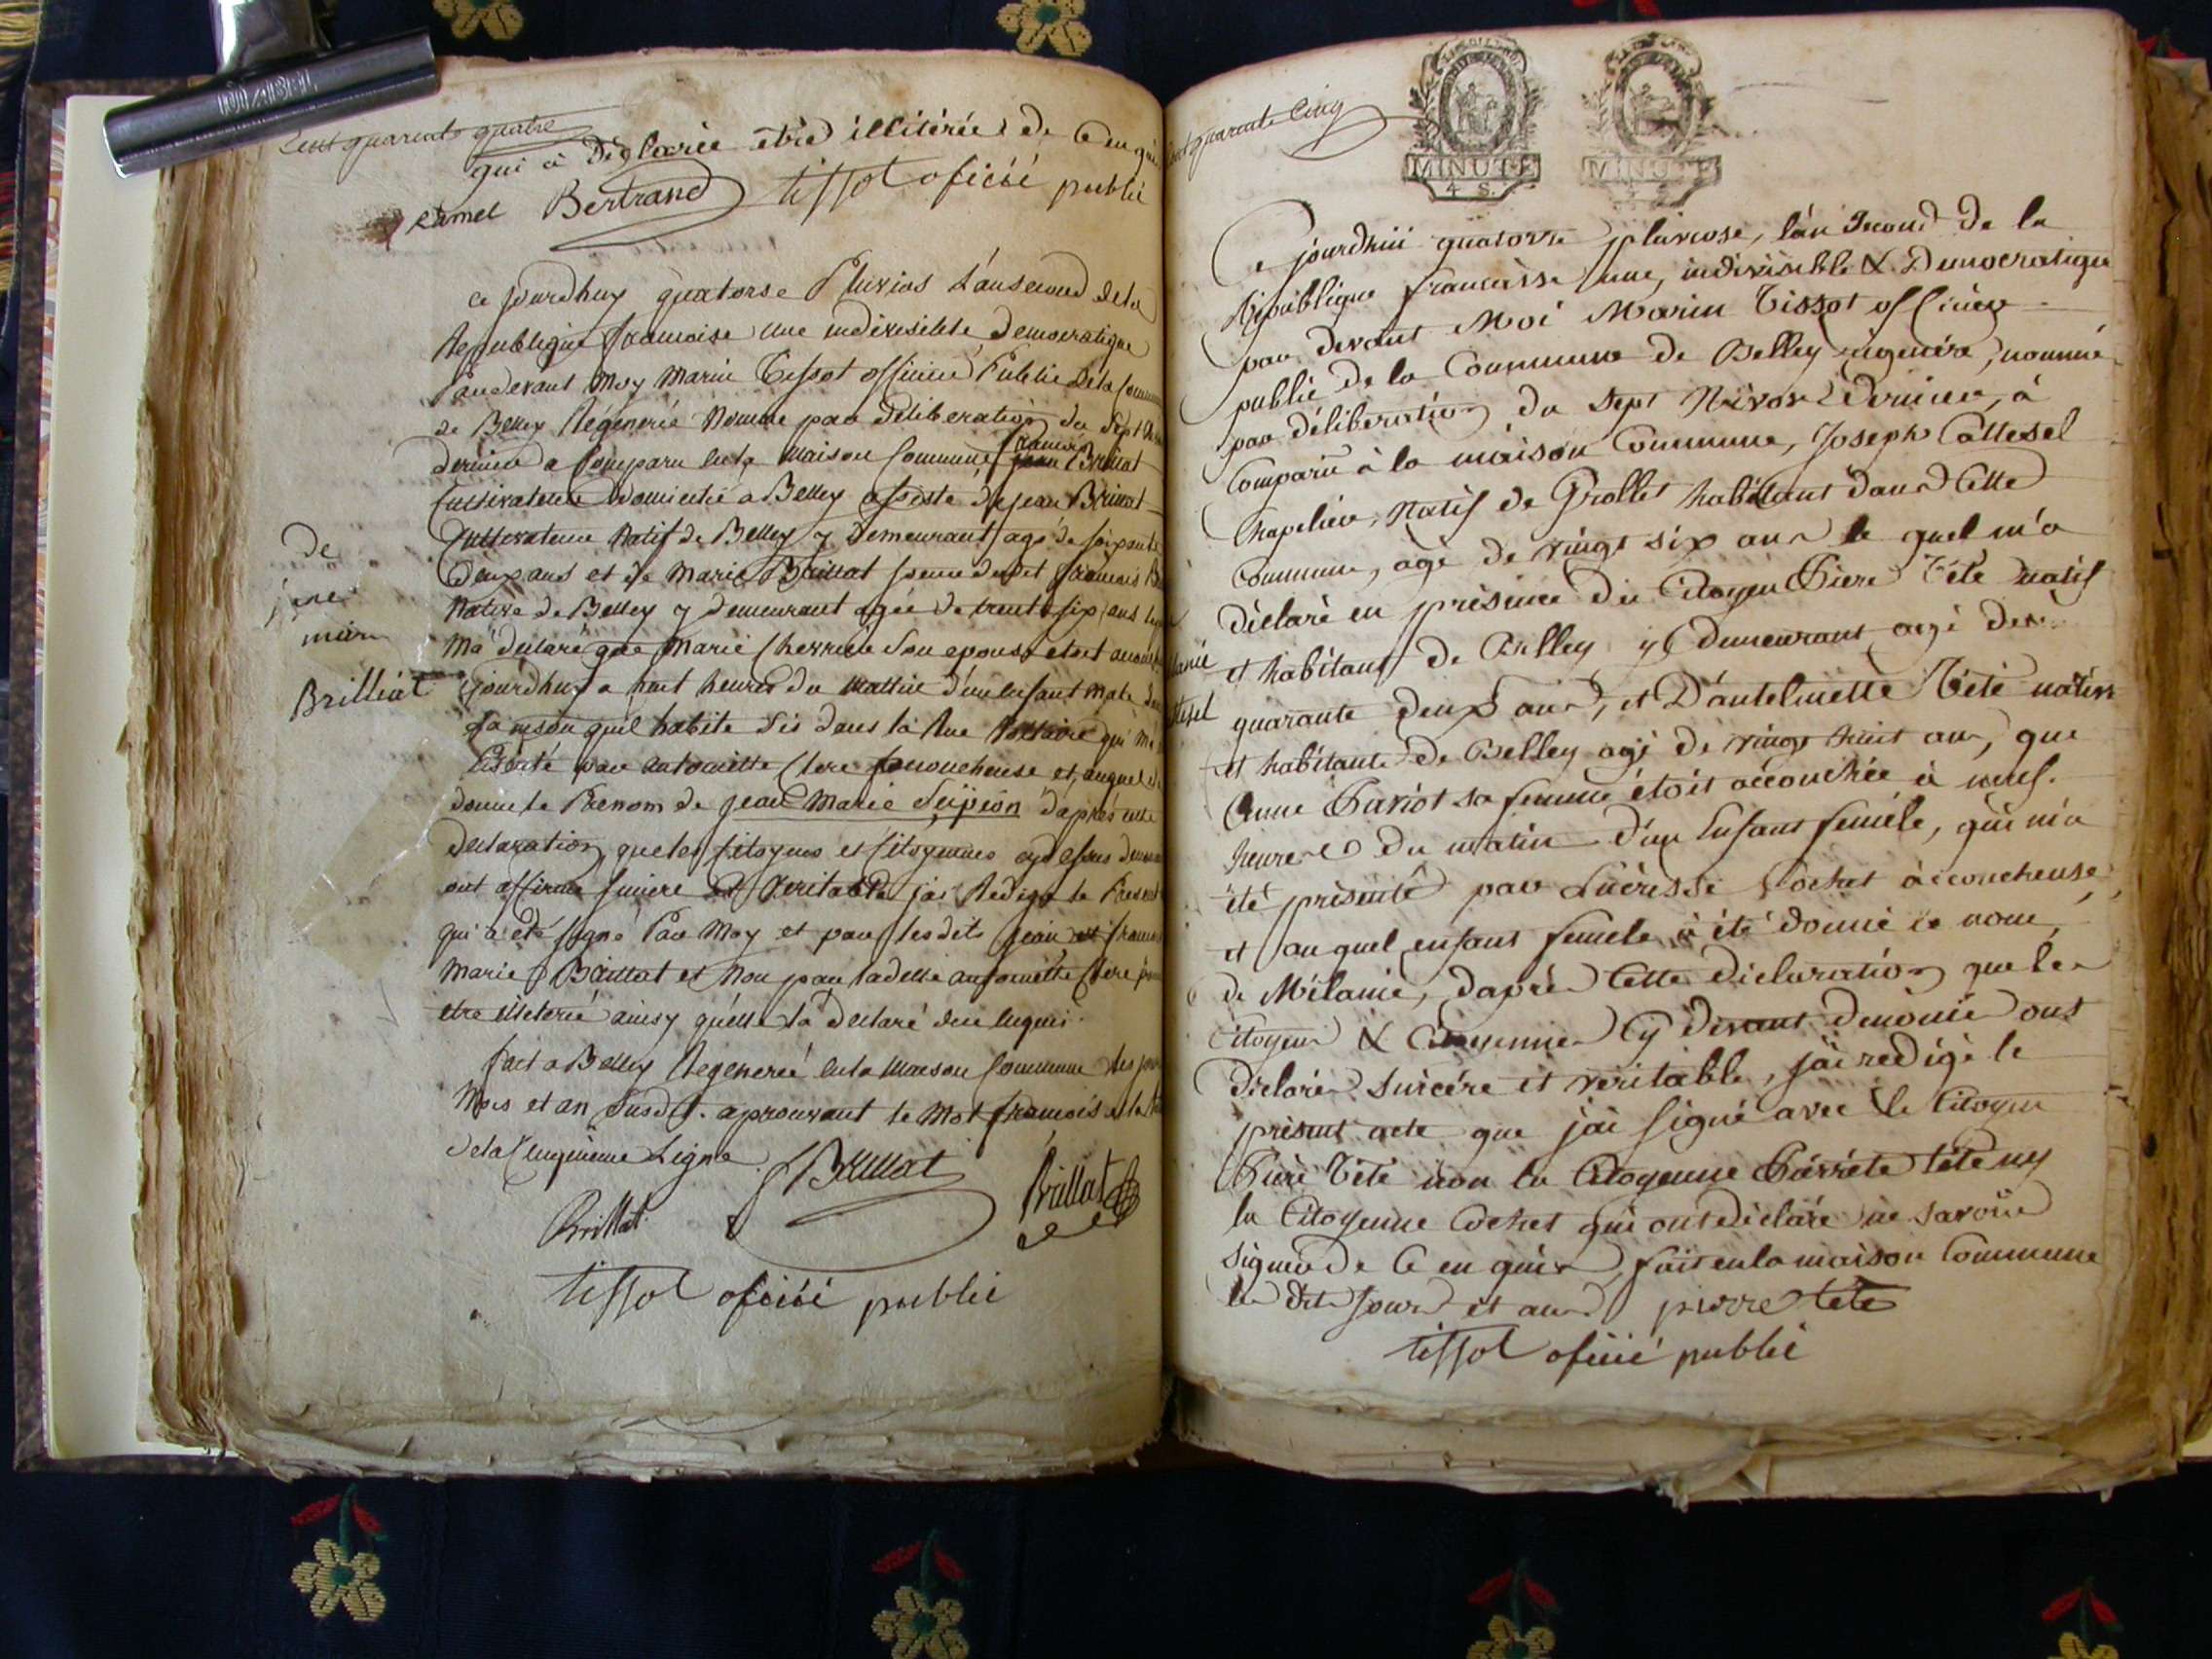 Cent quarante quatre
qui a déclarée être illitérée de ce enquis
camel Bertrand tissot oficié public
ce jourdhuy quatorse Pluvios L'ansecond dela
Republique francoise une indivisiblle democratique
Pardevant moy marin Tissot officier Public dela Commune
de Belley Régénéré Nommé par déliberation du Sept
dernier a Comparu enla maison Commune francois Brillat
Cultivateur Domicilié a Belley assisté de jean Brillat
Cultivateur Natif de Belley y Demeurant agé de soixante
Deux ans et de Marie Brillat femme dudit francois
Native de Belley y demeurant agée de trente six ans
Ma déclaré que Marie Cherrier Son epouse etoit
jourdhuy a huit heures du Mattin d'un enfant male
Maison quil habite sis dans la Rue Voltaire qui ma
par antoinette Clere accoucheuse et auquel
donne le Prenom de jean Marie Scipion daprés cette
declaration que les Citoyens et Citoyennes cydessus
ont affirmé sincere et Veritable jai Rédigé le Present
qui a été signé Par Moy et par lesdits jean et francois
Marie Brillat et Non par ladelle antoinette Clere
etre illeterié ainsy quelle la declaré deu enquis.
fait a Belley Regeneré enla Maison Commune les jour
Mois et an Susd. aprouvant le Mot francois
dela Cinquieme Ligne
de
jean
marie
Brilliat
Brillat
Brillat Brillat
tissot oficié public
Cent quarante Cinq
MINUTE MINUTE
4 S.
Ce jourdhui quatorze pluviose, l'an Second de la
République francaisse une, indivisible & Democratique
par devant Moi Marin Tissot officier
public de la Commune de Belley régénéré, nommé
par déliberation du Sept Nivose Dernier, à
Comparu à la maison Commune, Joseph Cattesel
Chapelier, Natif de Grollet habitant dans Cette
Commune, agé de vingt six ans le quel m'a
déclaré en présence du Citoyen Pierre Tété natif
et habitant de Belley y demeurant agé de
quarante deux ans, et D'antelmette Tété native
et habitante de Belley agé de vingt huit ans, que
Anne Pariot sa femme étoit accouchée à neuf
heures du matin d'un Enfant femele, qui m'a
été présenté par Lucresse Cochet accoucheuse,
et au quel enfant femele à été donné le nom
de Mélanie, daprés Cette Déclaration que les
Citoyens & Citoyennes Cy devant denomé ont
déclarés sincére et veritable, j'ai redigé le
présent acte que j'ai signé avec le Citoyen
Piere Tété non la Citoyenne tété ny
la Citoyenne Cochet qui ont déclaré ne savoir
signer de Ce enquis, fait en la maison Commune
les dits jour et an pierre tete
tissot oficié public